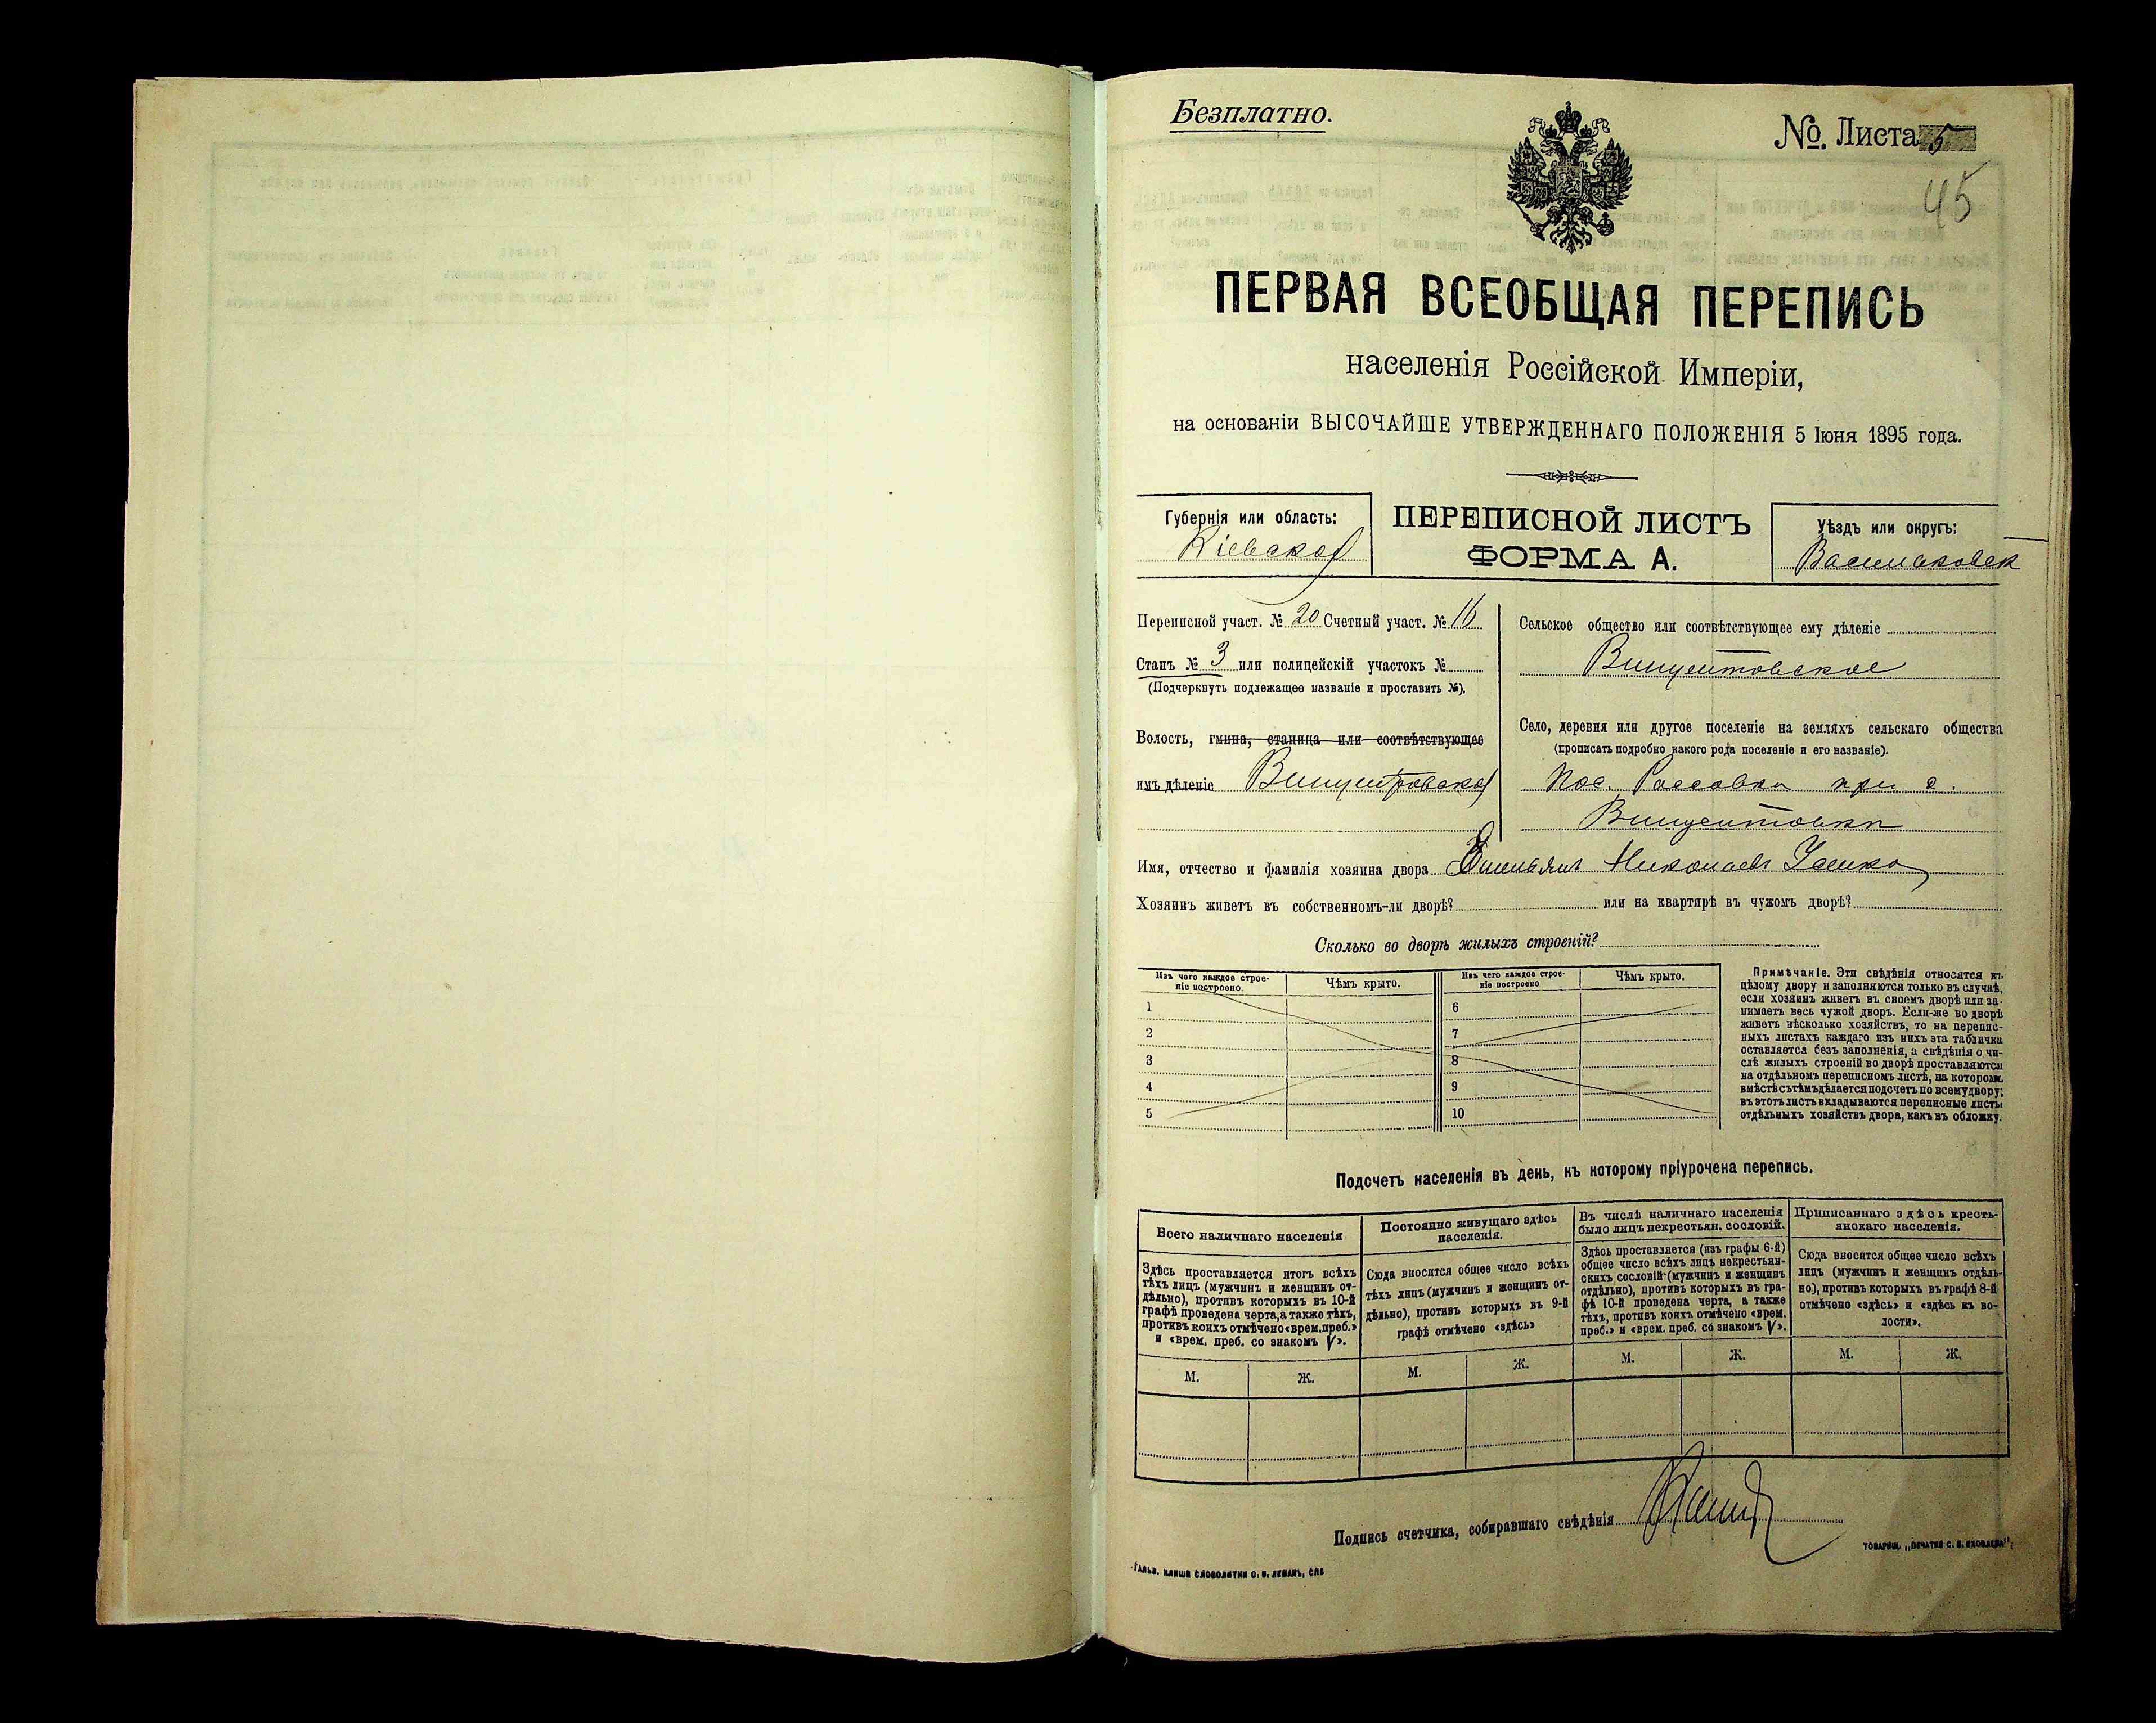 Безплатно.
№. Листа 5
45
ПЕРВАЯ ВСЕОБЩАЯ ПЕРЕПИСЬ
населенія Россійской Имперіи,
на основаніи ВЫСОЧАЙШЕ УТВЕРЖДЕННАГО ПОЛОЖЕНІЯ 5 Іюня 1895 года.
Губернія или область:
Кіевская
ПЕРЕПИСНОЙ ЛИСТЪ
ФОРМА А.
Уѣздъ или округъ:
Васильковск
Переписной участ. № 20 Счетный участ. № 16
Станъ № 3 или полицейскій участокъ №
(Подчеркнуть подлежащее названіе и проставить №).
Волость, гмина, станица или соотвѣтствующее
имъ дѣленіе Винцентовская
Сельское общество или соотвѣтствующее ему дѣленіе
Винцентовское
Село, деревня или другое поселеніе на земляхъ сельскаго общества
(прописать подробно какого рода поселеніе и его названіе).
пос. Россовка при д.
Винцентовкѣ
Имя, отчество и фамилія хозяина двора Николаевъ
Хозяинъ живетъ въ собственномъ-ли дворѣ? или на квартирѣ въ чужомъ дворѣ?
Сколько во дворѣ жилыхъ строеній?
Изъ чего каждое строе-
ніе построено.
Чѣмъ крыто.
Изъ чего каждое строе-
ніе построено
Чѣмъ крыто.
1 6
2 7
3 8
4 9
5 10
Примѣчаніе. Эти свѣдѣнія относятся къ
цѣлому двору и заполняются только въ случаѣ,
если хозяинъ живетъ въ своемъ дворѣ или за-
нимаетъ весь чужой дворъ. Если-же во дворѣ
живетъ нѣсколько хозяйствъ, то на перепис-
ныхъ листахъ каждаго изъ нихъ эта табличка
оставляется безъ заполненія, а свѣдѣнія о чи-
слѣ жилыхъ строеній во дворѣ проставляются
на отдѣльномъ переписномъ листѣ, на которомъ
вмѣстѣ съ тѣмъ дѣлается подсчетъ по всему двору;
въ этотъ листъ вкладываются переписные листы
отдѣльныхъ хозяйствъ двора, какъ въ обложку.
Подсчетъ населенія въ день, къ которому пріурочена перепись.
Всего наличнаго населенія
Здѣсь проставляется итогъ всѣхъ
тѣхъ лицъ (мужчинъ и женщинъ от-
дѣльно), противъ которыхъ въ 10-й
графѣ проведена черта, а также тѣхъ,
противъ коихъ отмѣчено «врем. преб.»
и «врем. преб. со знакомъ V».
М. Ж.
Постоянно живущаго здѣсь
населенія.
Сюда вносится общее число всѣхъ
тѣхъ лицъ (мужчинъ и женщинъ от-
дѣльно), противъ которыхъ въ 9-й
графѣ отмѣчено «здѣсь»
М. Ж.
Въ числѣ наличнаго населенія
было лицъ некрестьян. сословій.
Здѣсь проставляется (изъ графы 6-й)
общее число всѣхъ лицъ некрестьян-
скихъ сословій (мужчинъ и женщинъ
отдѣльно), противъ которыхъ въ гра-
фѣ 10-й проведена черта, а также
тѣхъ, противъ коихъ отмѣчено «врем.
преб.» и «врем. преб. со знакомъ V».
М. Ж.
Приписаннаго здѣсь кресть-
янскаго населенія.
Сюда вносится общее число всѣхъ
лицъ (мужчинъ и женщинъ отдѣль-
но), противъ которыхъ въ графѣ 8-й
отмѣчено «здѣсь» и «здѣсь къ во-
лости».
М. Ж.
Подпись счетчика, собиравшаго свѣдѣнія
Гальв. клише словолитни О. И. Леманъ, СПБ
Товарищ. „Печатня С. П. Яковлева“;